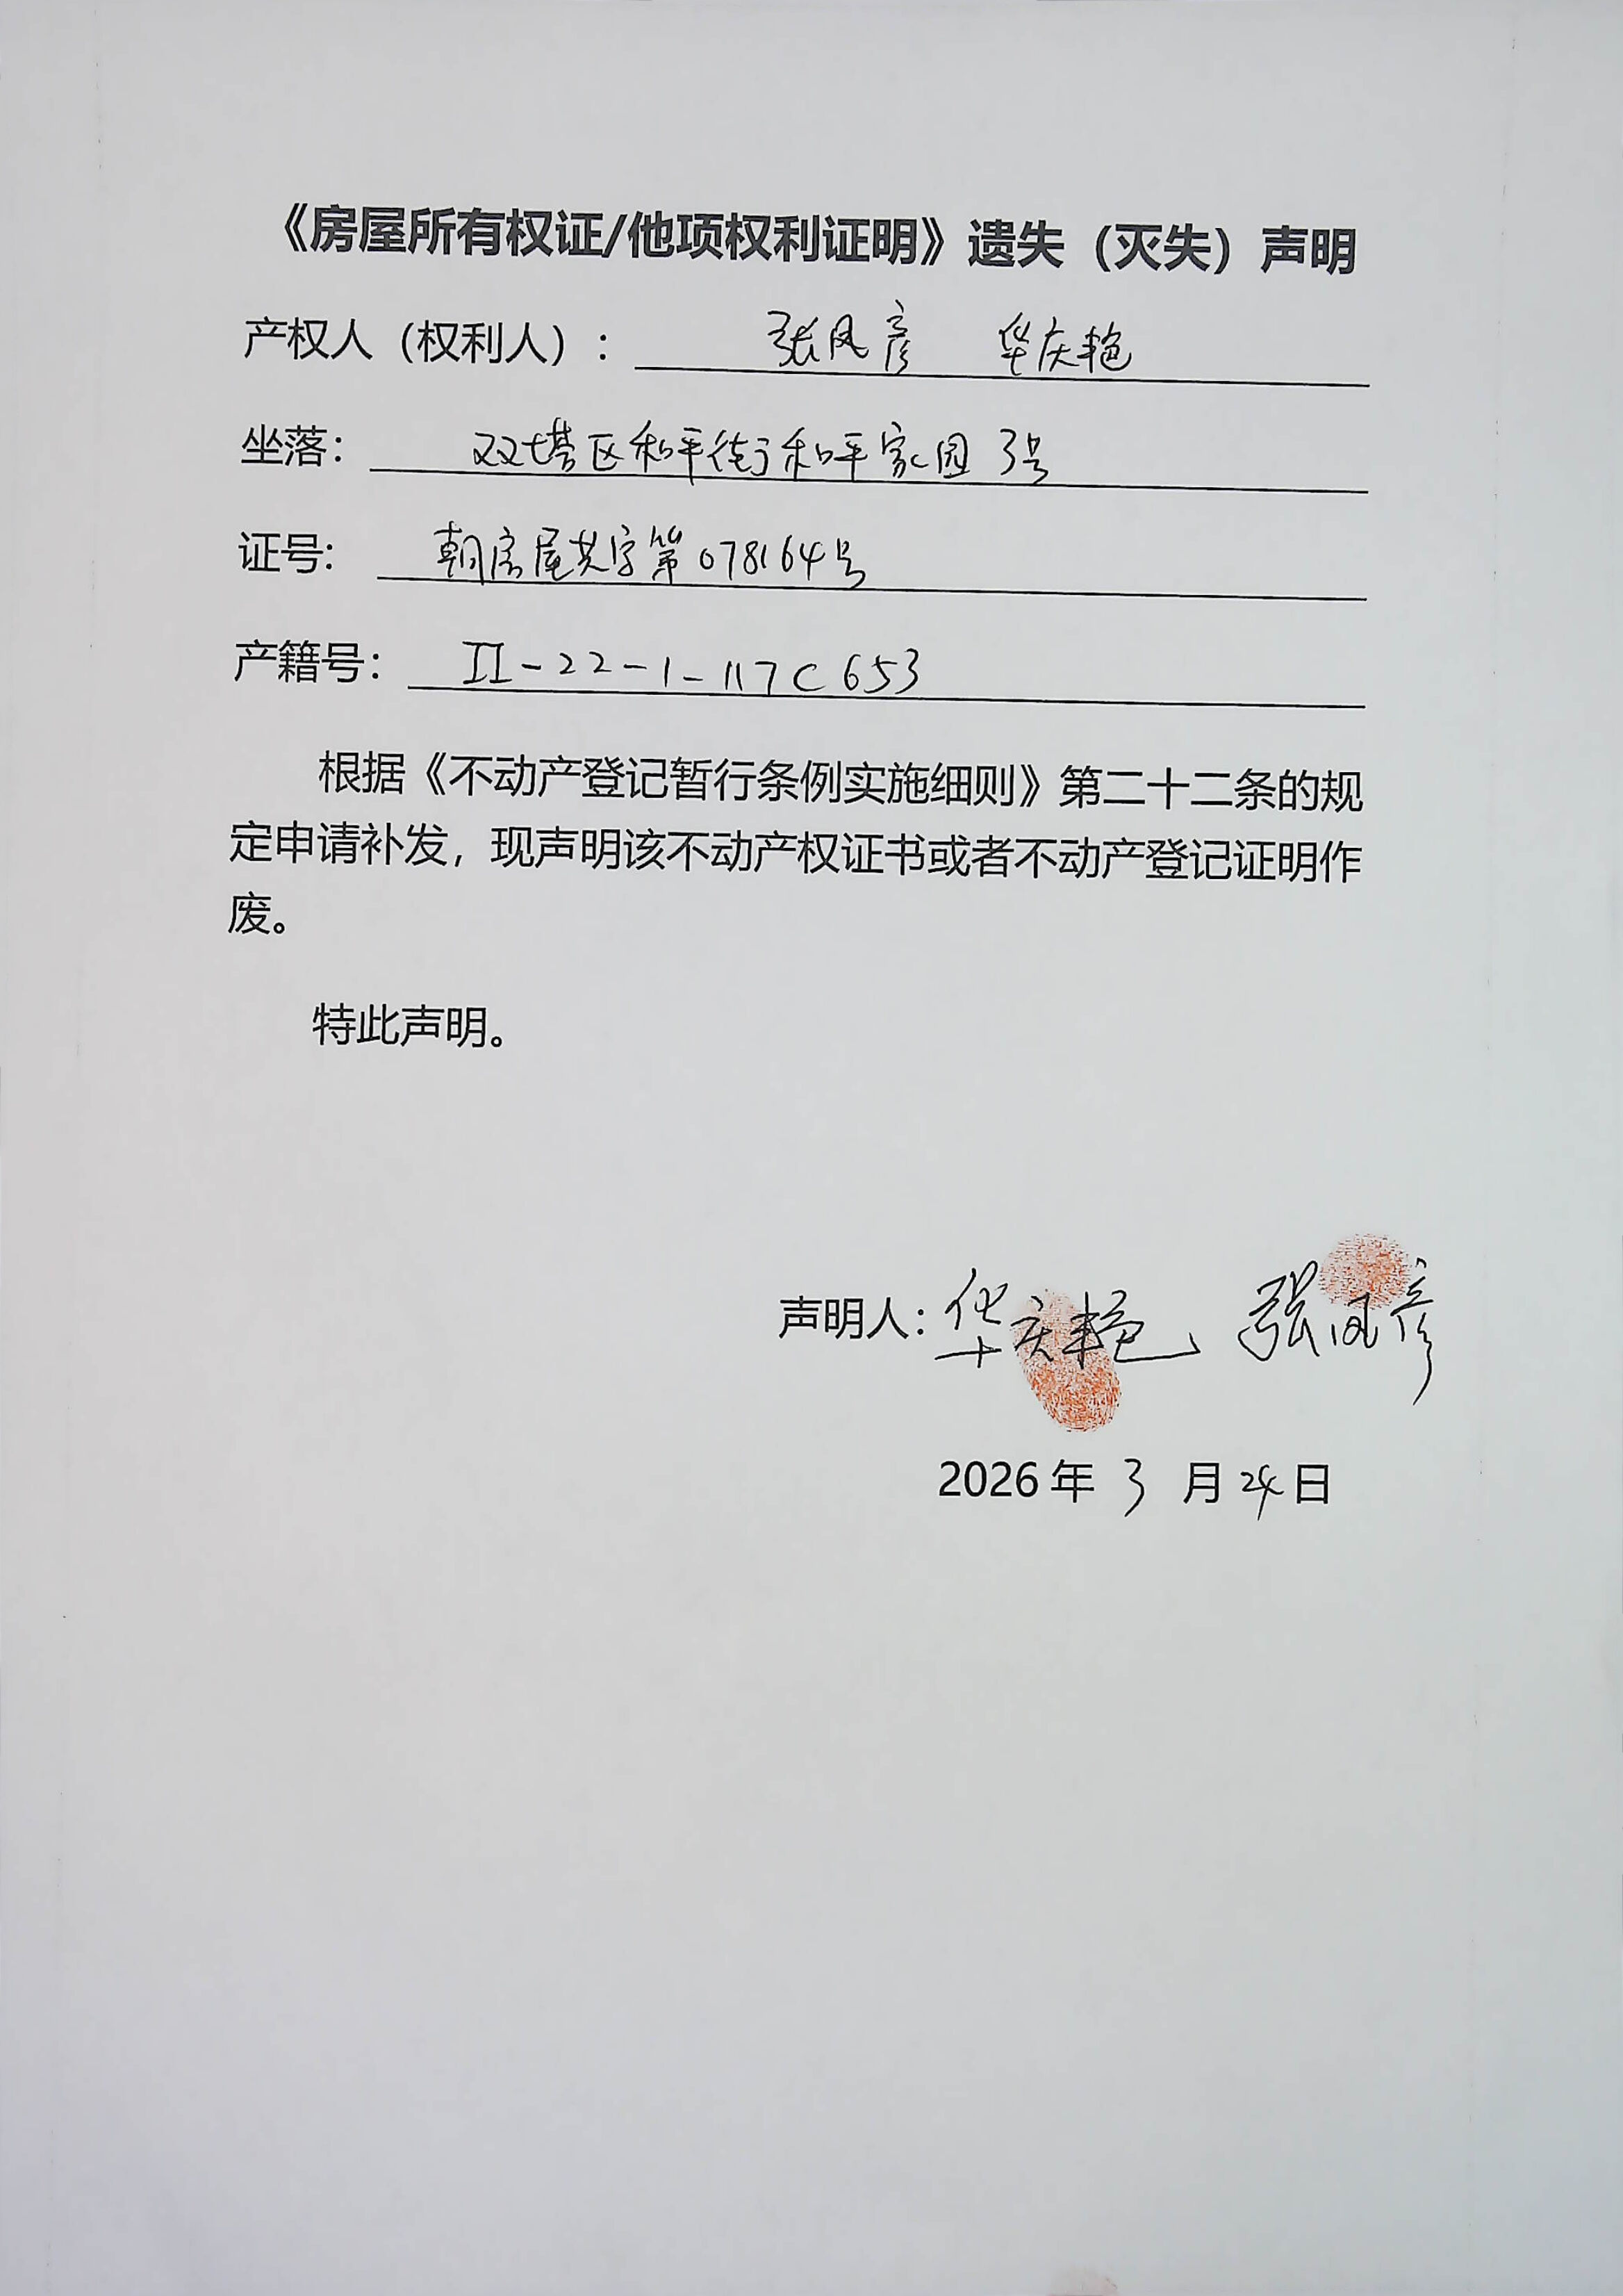 《房屋所有权证/他项权利证明》遗失（灭失）声明
产权人（权利人）： 张凤彦 华庆艳
坐落： 双塔区和平街和平家园3号
证号： 朝房屋共字第078164号
产籍号： II-22-1-117C653
根据《不动产登记暂行条例实施细则》第二十二条的规
定申请补发，现声明该不动产权证书或者不动产登记证明作
废。
特此声明。
声明人：华庆艳 张凤彦
2026年 3 月 24 日